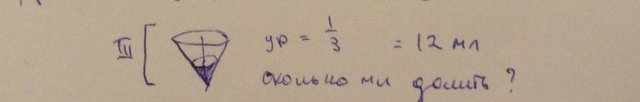 III [ ур = 1/3 = 12 мл
сколько мл долить ?